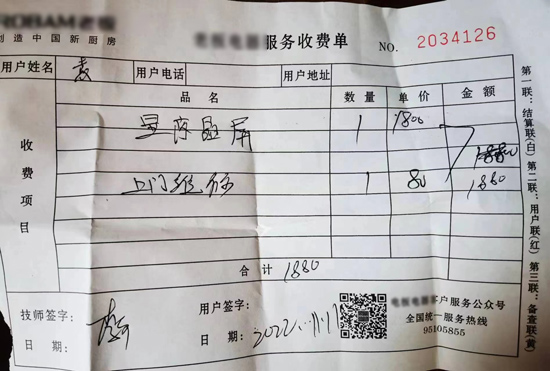 ROBAM老板
创造中国新厨房
服务收费单
NO. 2034126
用户姓名 袁 用户电话 用户地址
收费项目
品名 数量 单价 金额
显示晶屏 1 1800
1880
上门维修 1 80 1880
合计 1880
技师签字:
用户签字:
日期:
日期: 2022.11.17
客户服务公众号
全国统一服务热线
95105855
第一联:结算联(白) 第二联:用户联(红) 第三联:备查联(黄)